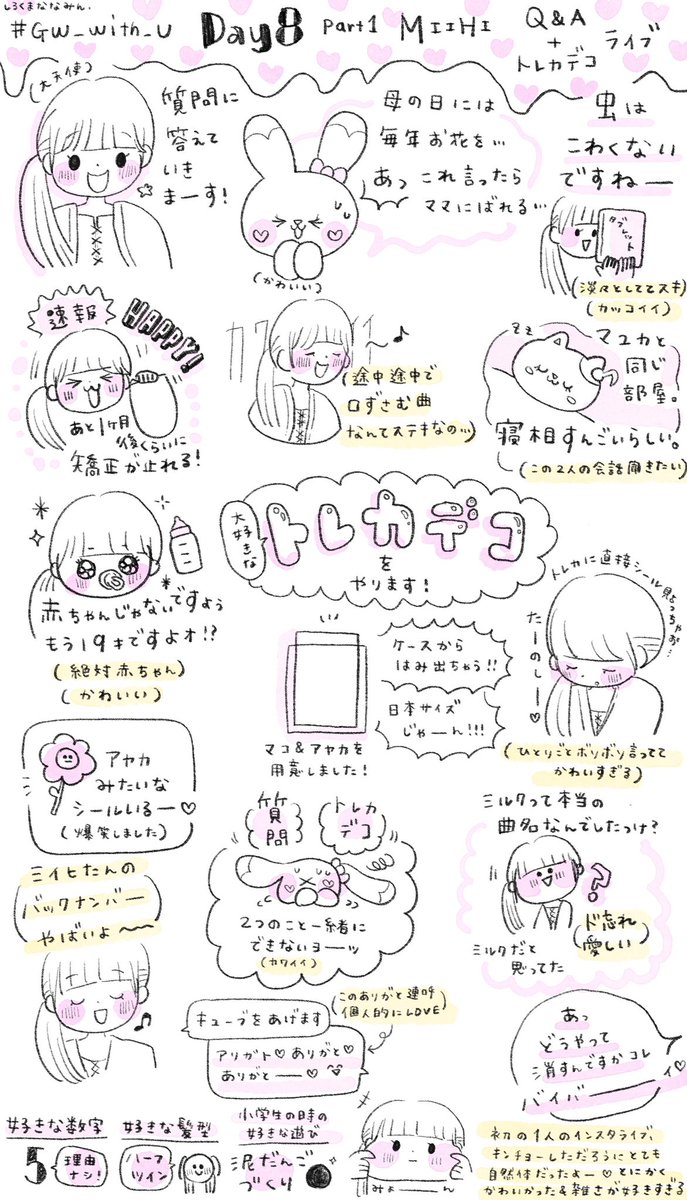 しろくまななみん.
#GW_with_U Day8 Part1 MIIHI Q&A
+
トレカデコ
ライブ
(大天使)
質問に
答えて
いき
まーす!
母の日には
毎年お花を…
あっ これ言ったら
ママにばれる…
(かわいい)
虫は
こわくない
ですねー
タブレット
(淡々としててスキ)
(カッコイイ)
速報
HAPPY!
あと1ヶ月
後くらいに
矯正が止れる!
〜♪
(途中途中で
口ずさむ曲
なんてステキなのっ…)
zz
マユカと
同じ
部屋。
寝相すんごいらしい。
(この2人の会話聞きたい)
赤ちゃんじゃないですよぅ
もう19才ですよォ!?
(絶対赤ちゃん)
(かわいい)
大好きな
トレカデコ
を
やります!
ケースから
はみ出ちゃう!!
日本サイズ
じゃーん!!!
マコ&アヤカを
用意しました!
トレカに直接シール貼っちゃお…
たーのしー♡
(ひとりごとボソボソ言ってて
かわいすぎる)
アヤカ
みたいな
シールいるー♡
(爆笑しました)
質問
トレカデコ
2つのこと一緒に
できないヨーッ
(カワイイ)
ミルクって本当の
曲名なんでしたっけ?
?
(ド忘れ
愛しい)
ミルクだと
思ってた
ミイヒたんの
バックナンバー
やばいよ〜〜
♪
キューブをあげます
アリガト♡ありがと♡
ありがとー♡
(このありがと連呼
個人的にLOVE)
あっ
どうやって
消すんですかコレ
バイバーーイ♡
好きな数字
5
理由
ナシ!
好きな髪型
ハーフ
ツイン
小学生の時の
好きな遊び
泥だんご
づくり
みょーん
初の1人のインスタライブ、
キンチョーしただろうにとても
自然体だったよー♡とにかく
かわいかった&雑さが好きすぎる